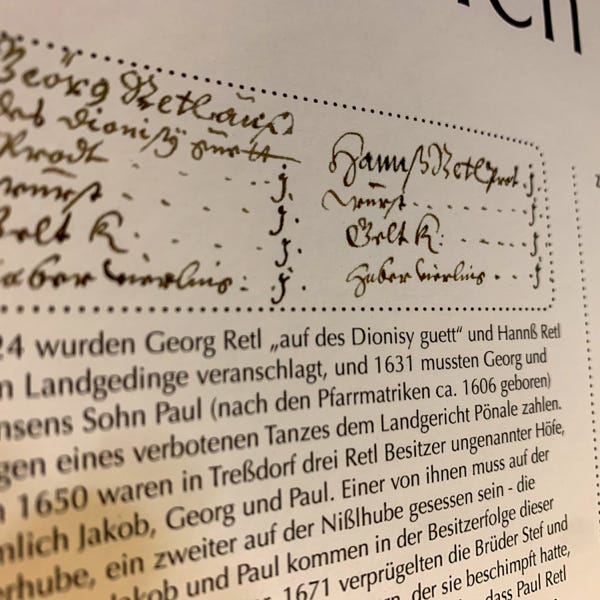 Georg Retl auf
des Dionisÿ guett
Hannß Retl prot . j.
Prodt . . . j.
wurst . . . . . j.
wurst . . . . . j.
Gelt K: . . . . j.
Gelt K: . . . . j.
haber vierling: . j.
haber vierling . . . j
24 wurden Georg Retl „auf des Dionisy guett“ und Hannß Retl
n Landgedinge veranschlagt, und 1631 mussten Georg und
nsens Sohn Paul (nach den Pfarrmatriken ca. 1606 geboren)
gen eines verbotenen Tanzes dem Landgericht Pönale zahlen.
1650 waren in Treßdorf drei Retl Besitzer ungenannter Höfe,
nlich Jakob, Georg und Paul. Einer von ihnen muss auf der
erhube, ein zweiter auf der Nißlhube gesessen sein - die
Jakob und Paul kommen in der Besitzerfolge dieser
1671 verprügelten die Brüder Stef und
der sie beschimpft hatte,
dass Paul Retl